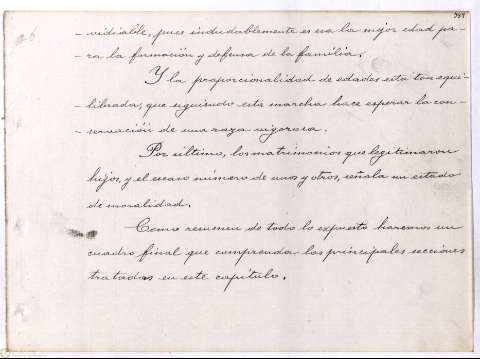 vidiable, pues indudablemente es esa la mejor edad pa-
ra la formación y defensa de la familia.
Y la proporcionalidad de edades esta tan equi-
librada, que siguiendo esta marcha hace esperar la con-
servación de una raza vigorosa.
Por último, los matrimonios que legitimaron
hijos, y el escaso número de unos y otros, señala un estado
de moralidad.
Como resumen de todo lo expuesto haremos un
cuadro final que comprenda las principales secciones
tratadas en este capítulo.